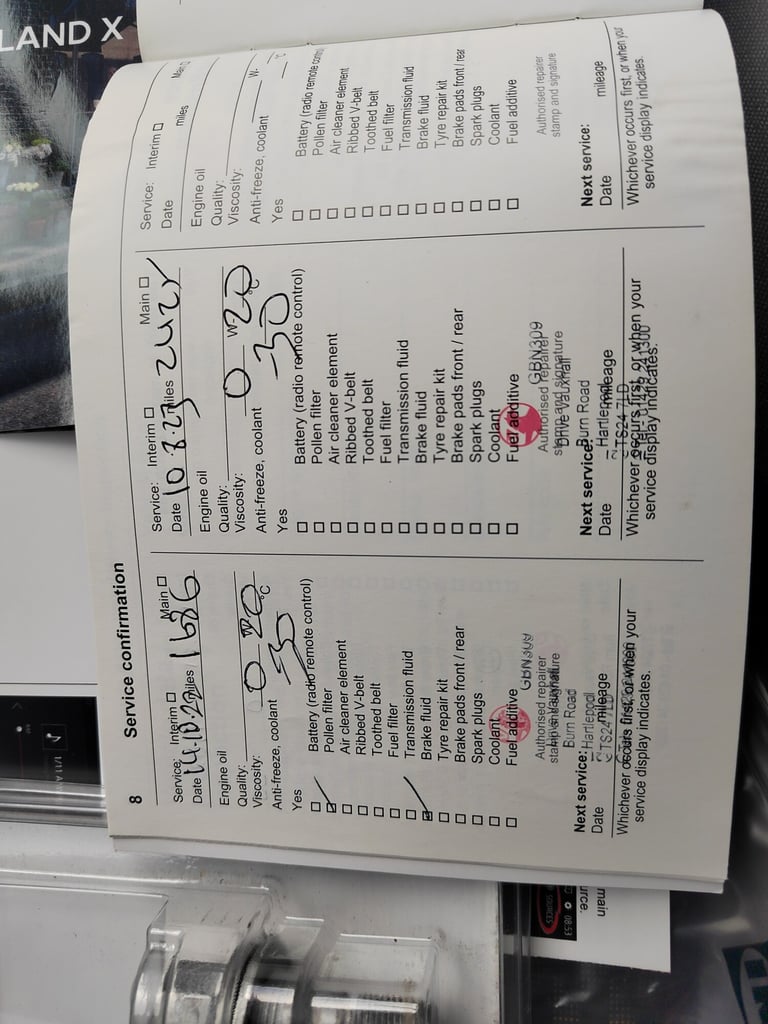 LAND X
8
Service confirmation
Service: Interim □
Main □
Date 14.10.22 miles 1686
Engine oil
Quality:
Viscosity: 0 W- 20
Anti-freeze, coolant -30 °C
Yes
Battery (radio remote control)
Pollen filter
Air cleaner element
Ribbed V-belt
Toothed belt
Fuel filter
Transmission fluid
Brake fluid
Tyre repair kit
Brake pads front / rear
Spark plugs
Coolant
Fuel additive
GBN309
Authorised repairer
stamp and signature
Drive Vauxhall
Burn Road
Next service:
Hartlepool
Date
mileage
TS24 7LD
Whichever occurs first, or when your
service display indicates.
Service: Interim □
Main □
Date 10 8.23 miles
Engine oil
Quality:
Viscosity: 0 W- 20
Anti-freeze, coolant -30 °C
Yes
Battery (radio remote control)
Pollen filter
Air cleaner element
Ribbed V-belt
Toothed belt
Fuel filter
Transmission fluid
Brake fluid
Tyre repair kit
Brake pads front / rear
Spark plugs
Coolant
Fuel additive
GBN309
Authorised repairer
stamp and signature
Drive Vauxhall
Burn Road
Next service:
Hartlepool
Date
mileage
TS24 7LD
Whichever occurs first, or when your
service display indicates.
Service: Interim □
Main □
Date
miles
Engine oil
Quality:
Viscosity: W-
Anti-freeze, coolant °C
Yes
Battery (radio remote control)
Pollen filter
Air cleaner element
Ribbed V-belt
Toothed belt
Fuel filter
Transmission fluid
Brake fluid
Tyre repair kit
Brake pads front / rear
Spark plugs
Coolant
Fuel additive
Authorised repairer
stamp and signature
Next service:
Date
mileage
Whichever occurs first, or when your
service display indicates.
SOURCES
08:53
main
urce.